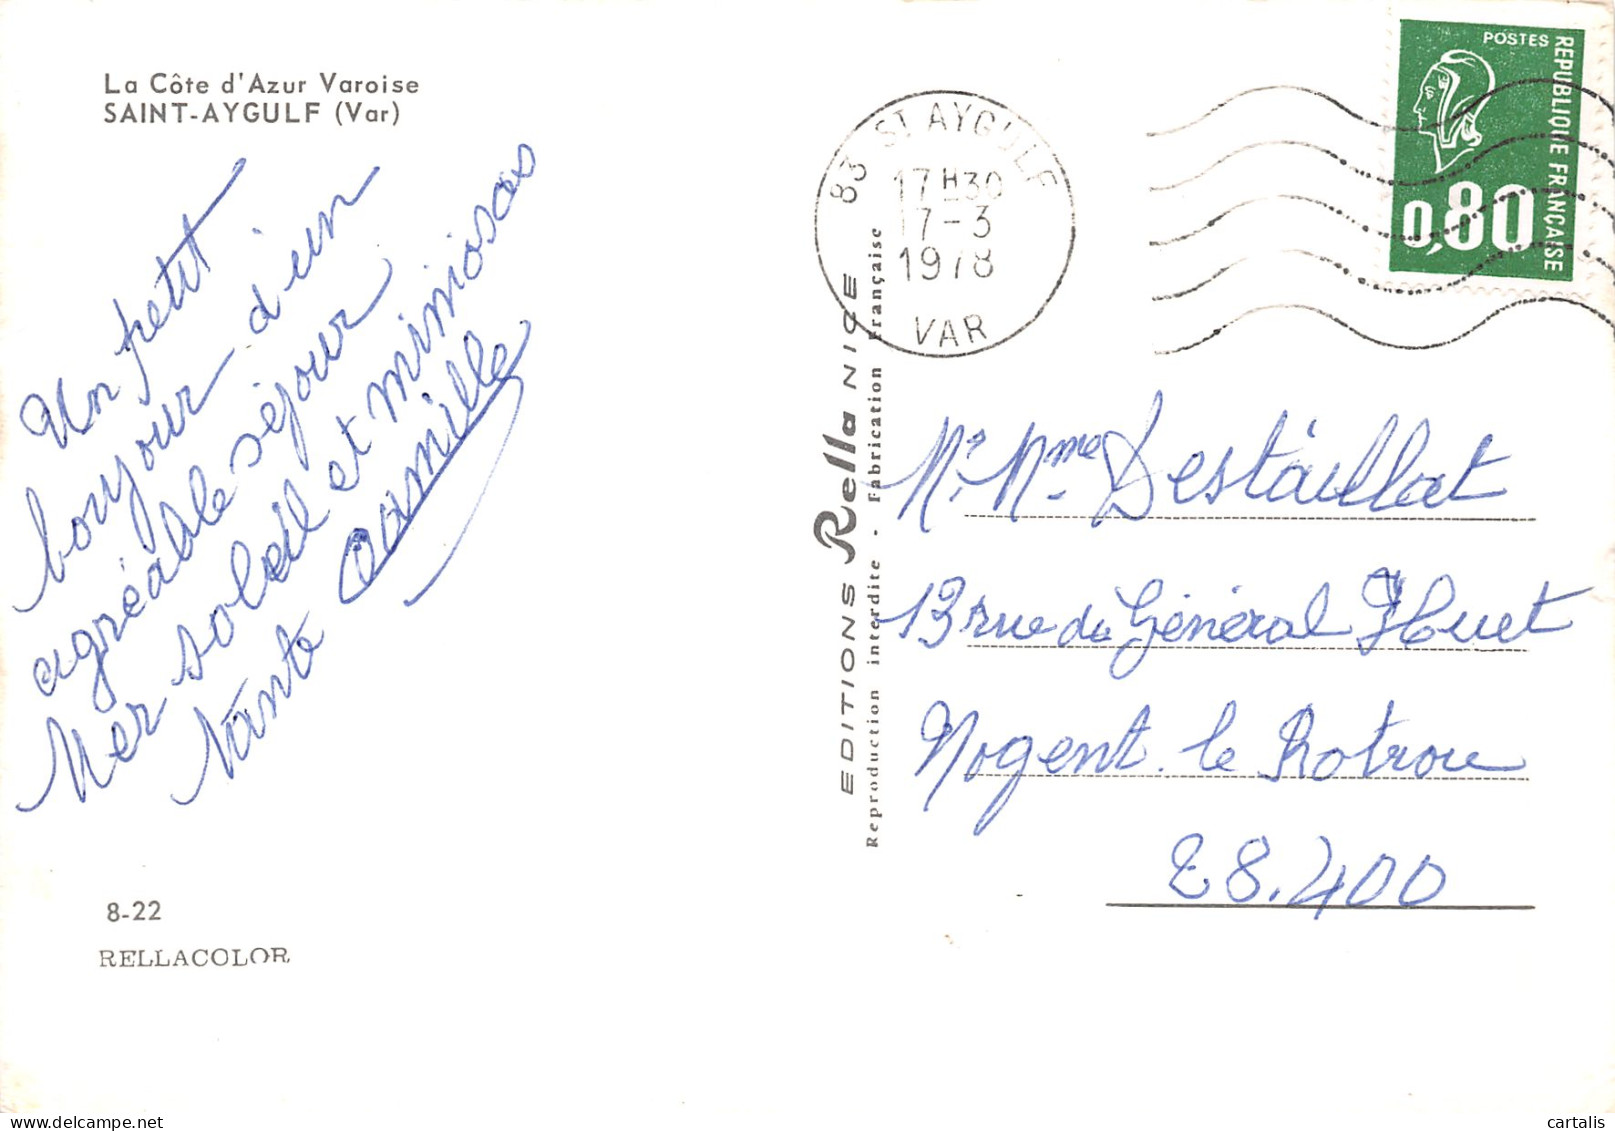 La Côte d'Azur Varoise
SAINT-AYGULF (Var)
Un petit
bonjour d'un
agréable séjour
Mer soleil et mimosas
tante Camille
8-22
RELLACOLOR
EDITIONS Rella NICE
Reproduction interdite - Fabrication Française
83 ST AYGULF
17H30
17-3
1978
VAR
POSTES
REPUBLIQUE FRANÇAISE
0,80
Mr. Mme Destaillat
13 rue du Général Huet
Nogent le Rotrou
28.400
delcampe.net
cartalis